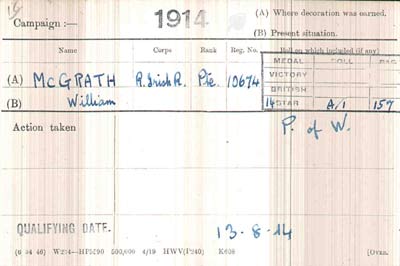 Campaign :— 1914 (A) Where decoration was earned.
(B) Present situation.
Name Corps Rank Reg. No. Roll on which included (if any)
MEDAL ROLL PAGE
VICTORY
(A) McGRATH R. Irish R. Pte. 10674
BRITISH
(B) William 14 STAR A/1 157
Action taken P. of W.
QUALIFYING DATE. 13-8-14
(6 34 46) W234—HP5590 500,000 4/19 HWV(P240) K608 [OVER.